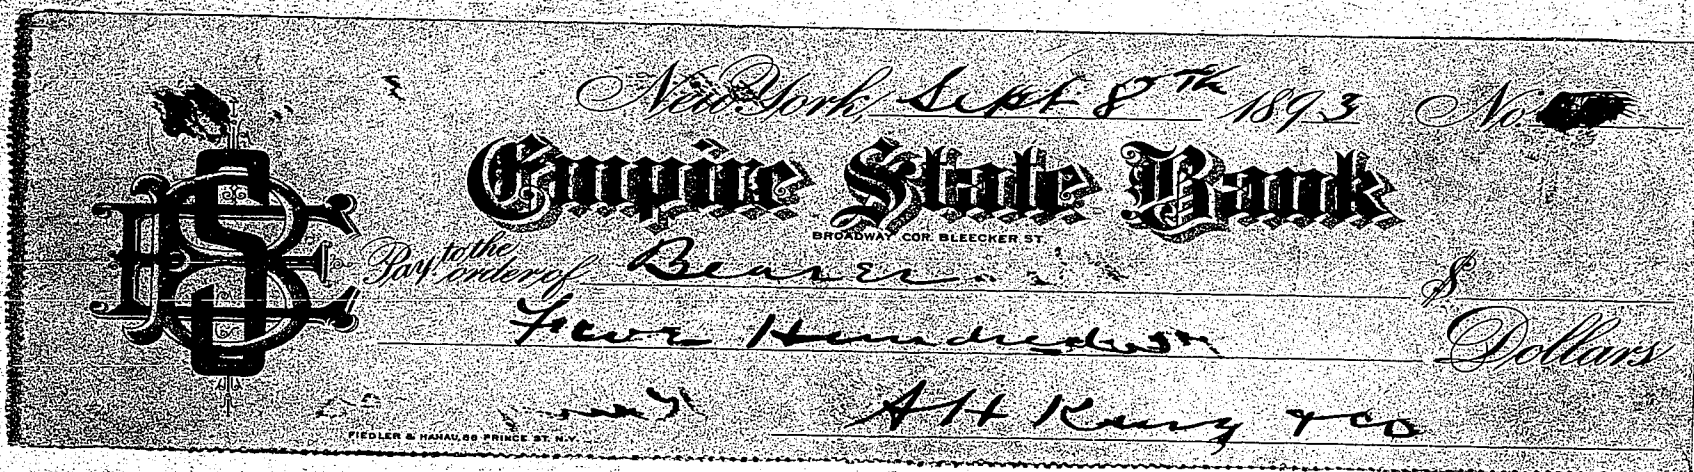 New York, Sept 8th 1893 No.
Empire State Bank
BROADWAY COR. BLEECKER ST.
Pay to the order of Bearer $
Five Hundred Dollars
A H King & Co
FIEDLER & HANAU, 66 PRINCE ST. N.Y.